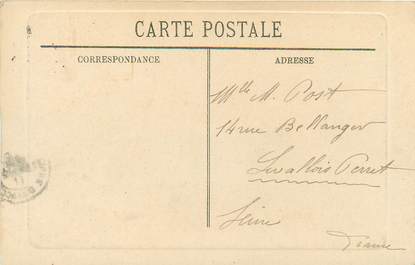 CARTE POSTALE
CORRESPONDANCE
ADRESSE
Mlle M. Post
14 rue Bellanger
Levallois Perret
Seine
France